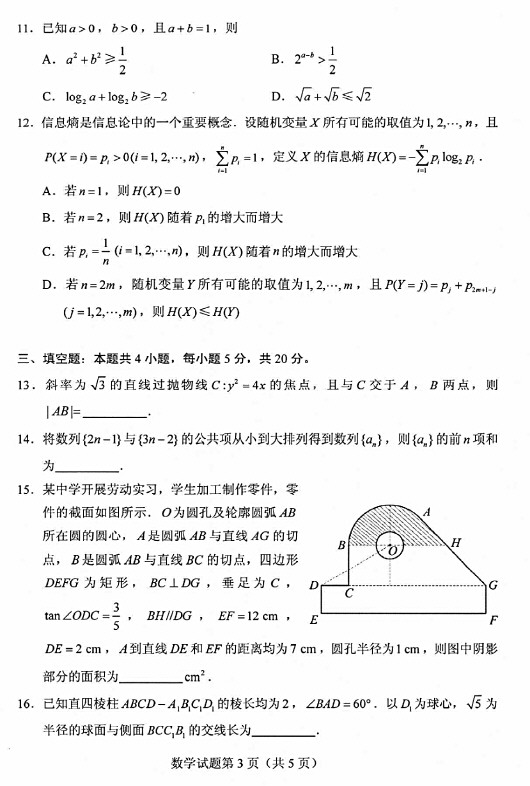 11. 已知a>0，b>0，且a+b=1，则
A. a²+b²≥1/2
B. 2^(a-b)>1/2
C. log₂a+log₂b≥-2
D. √a+√b≤√2
12. 信息熵是信息论中的一个重要概念．设随机变量X所有可能的取值为1, 2,⋯, n，且
P(X=i)=pᵢ>0(i=1, 2,⋯, n)，∑_{i=1}^{n} pᵢ=1，定义X的信息熵H(X)=-∑_{i=1}^{n} pᵢ log₂ pᵢ．
A. 若n=1，则H(X)=0
B. 若n=2，则H(X)随着p₁的增大而增大
C. 若pᵢ=1/n (i=1, 2,⋯, n)，则H(X)随着n的增大而增大
D. 若n=2m，随机变量Y所有可能的取值为1, 2,⋯, m，且P(Y=j)=p_j+p_{2m+1-j}
(j=1,2,⋯,m)，则H(X)≤H(Y)
三、填空题：本题共4小题，每小题5分，共20分。
13. 斜率为√3的直线过抛物线C:y²=4x的焦点，且与C交于A，B两点，则
|AB|=________．
14. 将数列{2n-1}与{3n-2}的公共项从小到大排列得到数列{aₙ}，则{aₙ}的前n项和
为________．
15. 某中学开展劳动实习，学生加工制作零件，零
件的截面如图所示．O为圆孔及轮廓圆弧AB
所在圆的圆心，A是圆弧AB与直线AG的切
点，B是圆弧AB与直线BC的切点，四边形
DEFG为矩形，BC⊥DG，垂足为C，
tan∠ODC=3/5，BH//DG，EF=12 cm，
DE=2 cm，A到直线DE和EF的距离均为7 cm，圆孔半径为1 cm，则图中阴影
部分的面积为________cm²．
A
B
O
H
D
C
G
E
F
16. 已知直四棱柱ABCD-A₁B₁C₁D₁的棱长均为2，∠BAD=60°．以D₁为球心，√5为
半径的球面与侧面BCC₁B₁的交线长为________．
数学试题第3页（共5页）